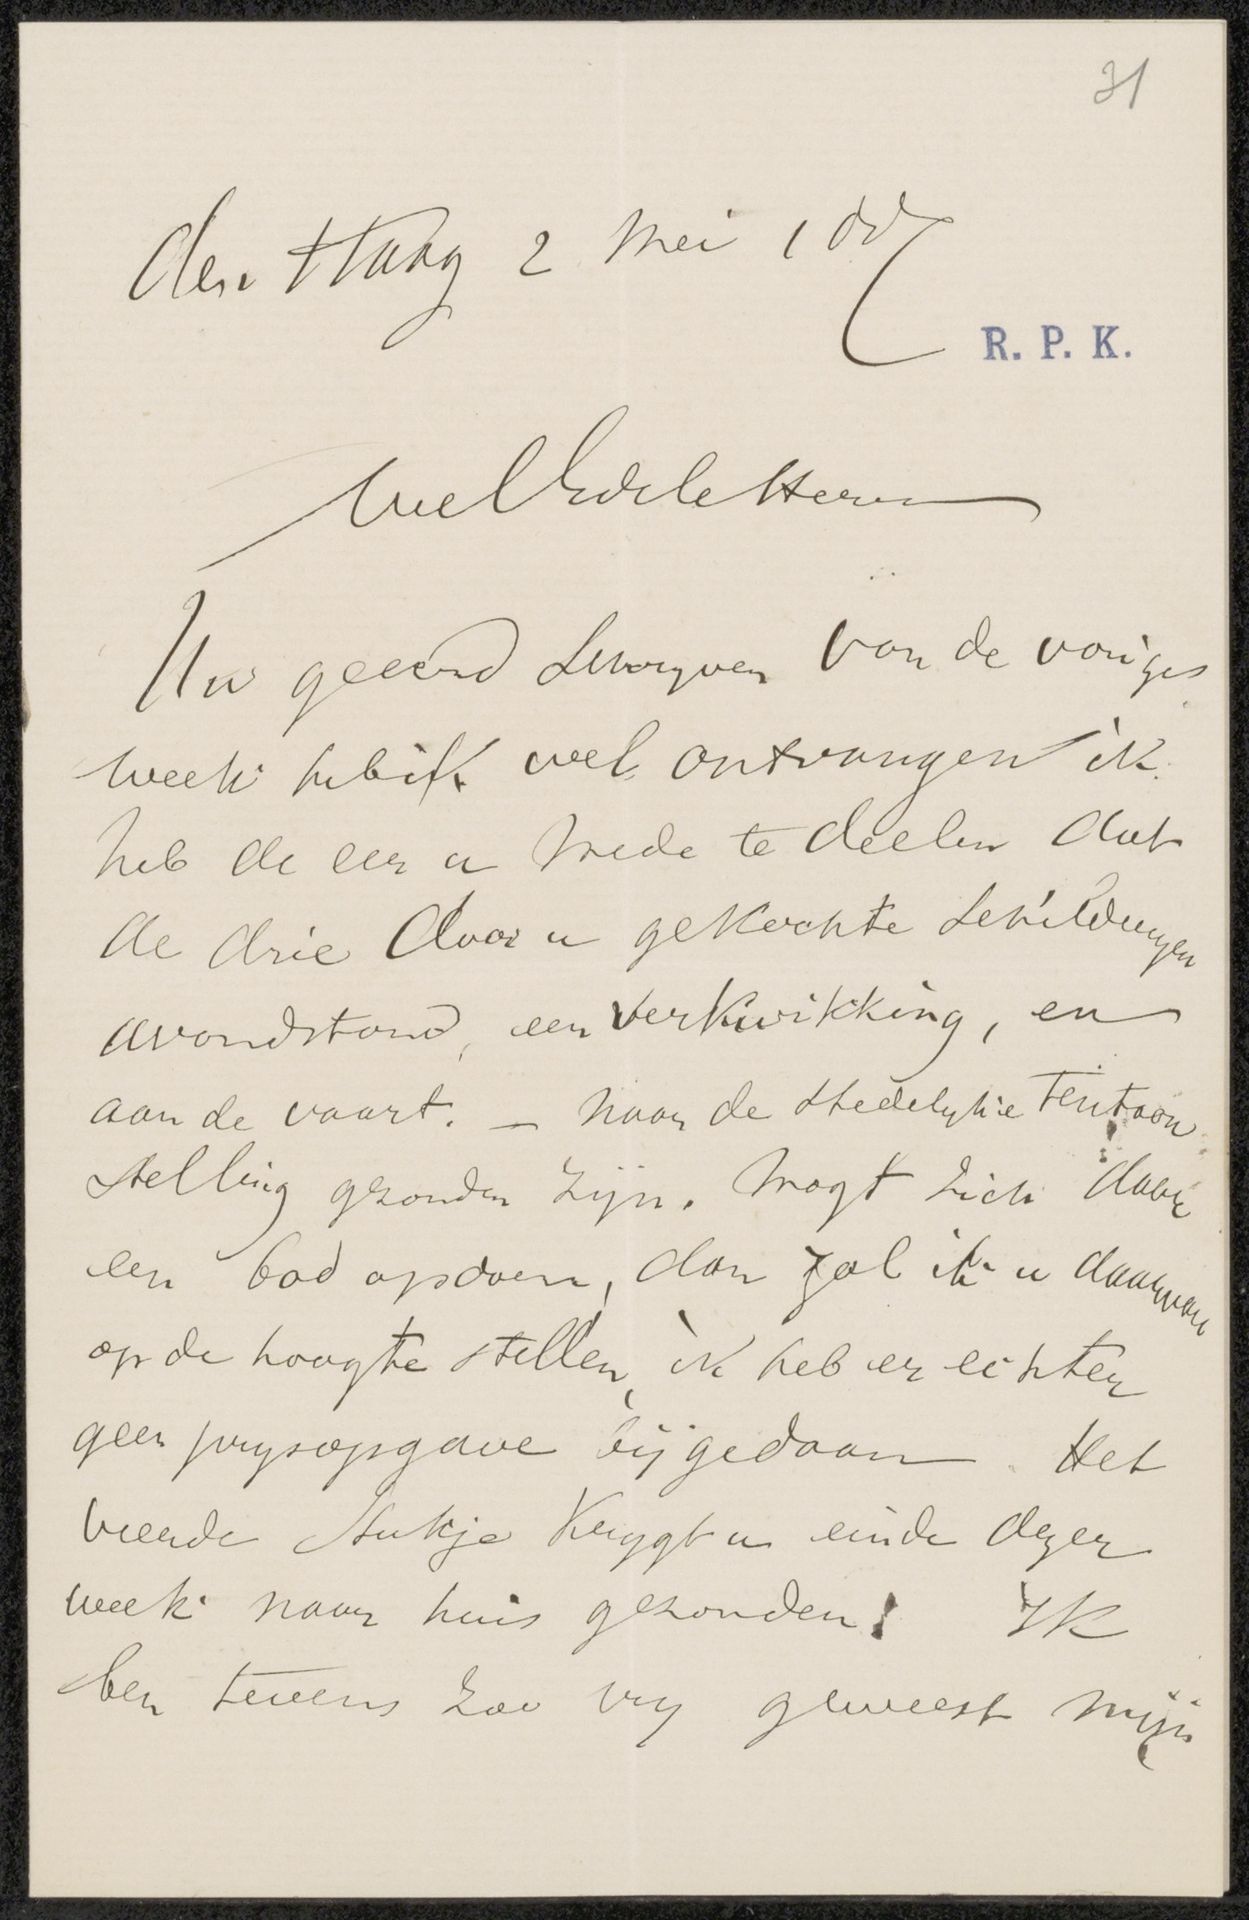 31
den Haag 2 Mei 1887
R. P. K.
WelEdele Heer
Uw geeerd schryven van de vorige
week heb ik wel ontvangen ik
heb de eer u mede te deelen dat
de drie door u gekochte schilderyen
avondstond, een verkwikking, en
aan de vaart. – naar de stedelyke tentoon
stelling gezonden zijn. Mogt zich daar
een bod opdoen, dan zal ik u daarvan
op de hoogte stellen, ik heb er echter
geen prysopgave bij gedaan. Het
vierde stukje krygt u einde dezer
week naar huis gezonden! Ik
ben tevens zoo vry geweest mijn